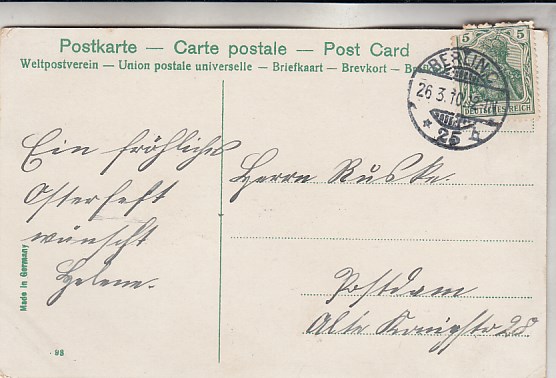 Postkarte — Carte postale — Post Card
Weltpostverein — Union postale universelle — Briefkaart — Brevkort —
5 5
DEUTSCHES REICH
BERLIN C
26.3.10
* 25 h
Ein fröhliches
Osterfest
wünscht
Helene.
Herrn Ruske.
Potsdam
Alte Königstr 28
Made in Germany
98